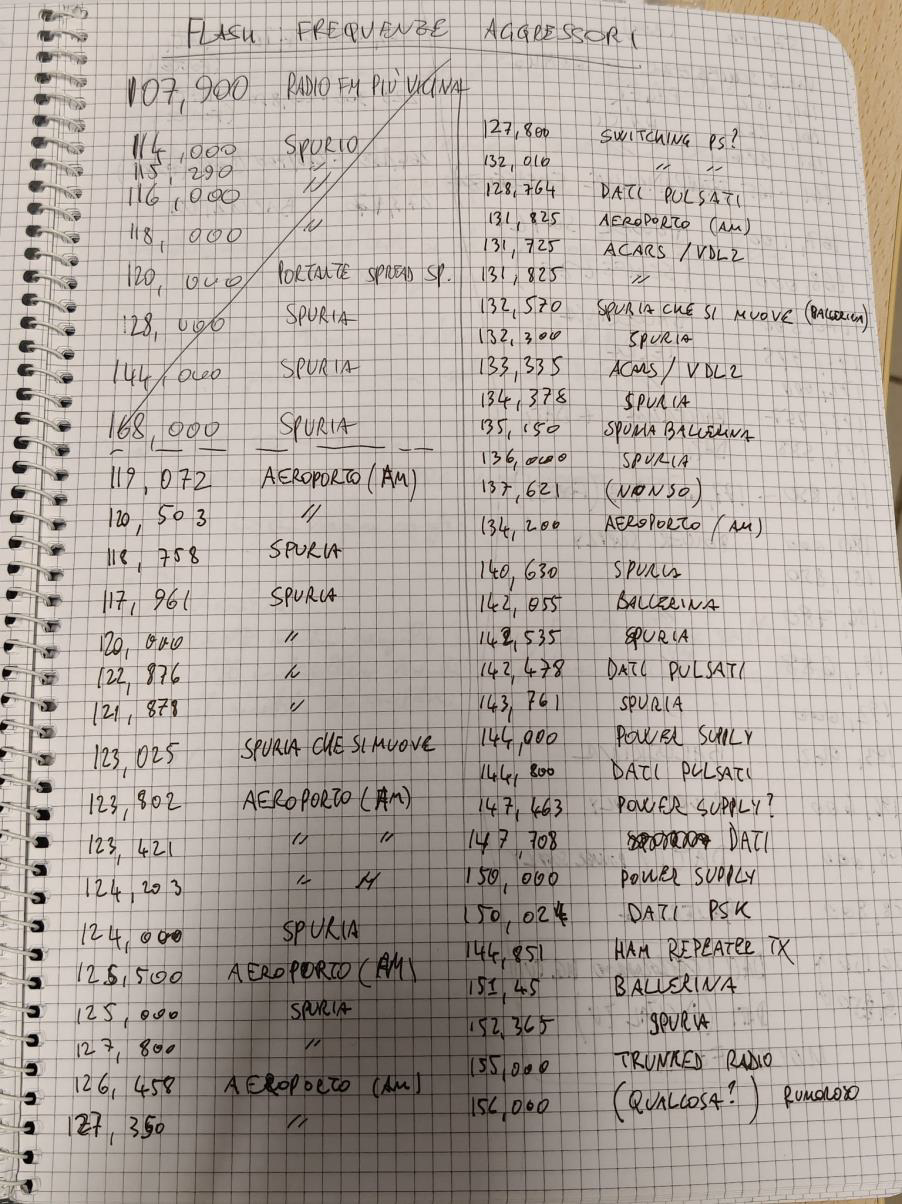 FLASH FREQUENZE AGGRESSORI
107,900 RADIO FM PIÙ VICINA
114,000 SPURIO
115,290 "
116,000 "
118,000 "
120,000 PORTANTE SPREAD SP.
128,000 SPURIA
144,000 SPURIA
168,000 SPURIA
119,072 AEROPORTO (AM)
120,503 "
118,758 SPURIA
117,961 SPURIA
120,000 "
122,876 "
121,878 "
123,025 SPURIA CHE SI MUOVE
123,802 AEROPORTO (AM)
123,421 " "
124,203 " "
124,000 SPURIA
125,500 AEROPORTO (AM)
125,000 SPURIA
127,800 "
126,458 AEROPORTO (AM)
127,350 "
127,800 SWITCHING PS?
132,010 " "
128,764 DATI PULSATI
131,825 AEROPORTO (AM)
131,725 ACARS / VDL2
131,825 "
132,570 SPURIA CHE SI MUOVE (BALLERINA)
132,300 SPURIA
133,335 ACARS / VDL2
134,378 SPURIA
135,150 SPURIA BALLERINA
136,000 SPURIA
137,621 (NON SO)
134,200 AEROPORTO (AM)
140,630 SPURIA
142,055 BALLERINA
142,535 SPURIA
142,478 DATI PULSATI
143,761 SPURIA
144,000 POWER SUPPLY
144,800 DATI PULSATI
147,463 POWER SUPPLY?
147,708 DATI
150,000 POWER SUPPLY
150,024 DATI PSK
144,851 HAM REPEATER TX
151,45 BALLERINA
152,365 SPURIA
155,000 TRUNKED RADIO
156,000 (QUALCOSA?) RUMOROSO